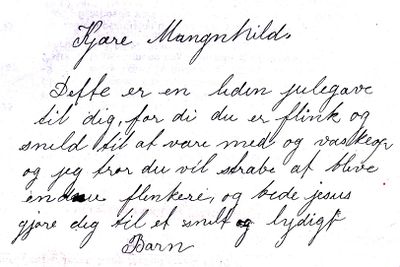 Kjære Mangnhild.
Dette er en liden julegave
til dig, for di du er flink og
snild til at være med og vaskeop
og jeg tror du vil strabe at blive
endnu flinkere, og bede jesus
gjøre dig til et snilt og lydigt
Barn